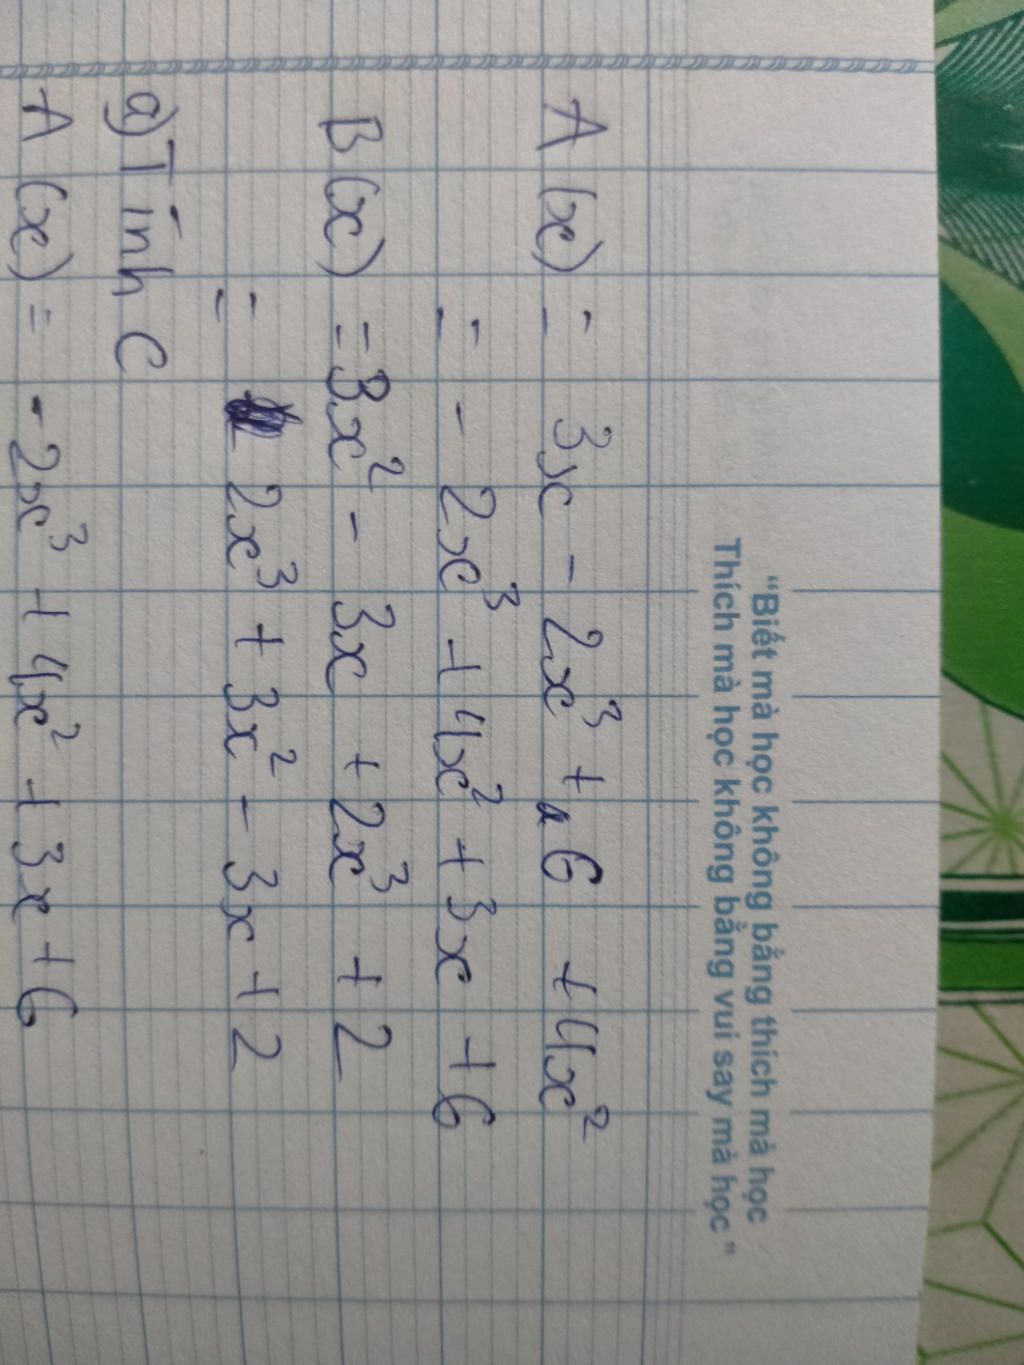 “Biết mà học không bằng thích mà học
Thích mà học không bằng vui say mà học”
A(x) = 3x - 2x³ + 6 + 4x²
= - 2x³ + 4x² + 3x + 6
B(x) = 3x² - 3x + 2x³ + 2
= 2x³ + 3x² - 3x + 2
a) Tính C
A(x) = - 2x³ + 4x² + 3x + 6